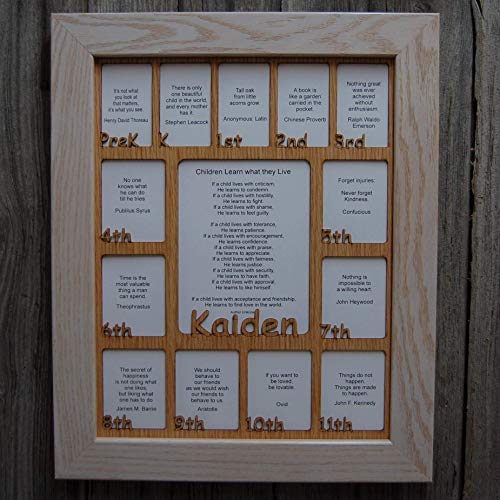 It's not what
you look at
that matters,
it's what you see.
Henry David Thoreau
PreK
There is only
one beautiful
child in the world,
and every mother
has it
Stephen Leacock
K
Tall oak
from little
acorns grow
Anonymous Latin
1st
A book is
like a garden
carried in the
pocket.
Chinese Proverb
2nd
Nothing great
was ever
achieved
without
enthusiasm.
Ralph Waldo
Emerson
3rd
No one
knows what
he can do
till he tries
Publius Syrus
4th
Children Learn what they Live
If a child lives with criticism,
He learns to condemn.
If a child lives with hostility,
He learns to fight.
If a child lives with shame,
He learns to feel guilty
If a child lives with tolerance,
He learns patience.
If a child lives with encouragement,
He learns confidence
If a child lives with praise,
He learns to appreciate.
If a child lives with fairness,
He learns justice.
If a child lives with security,
He learns to have faith.
If a child lives with approval,
He learns to like himself.
If a child lives with acceptance and friendship,
He learns to find love in the world.
Author Unknown
Kaiden
Forget injuries:
Never forget
Kindness.
Confucious
5th
Time is the
most valuable
thing a man
can spend.
Theophrastus
6th
Nothing is
impossible to
a willing heart.
John Heywood
7th
The secret of
happiness
is not doing what
one likes,
but liking what
one has to do
James M. Barrie
8th
We should
behave to
our friends
as we would wish
our friends to
behave to us.
Aristotle
9th
If you want to
be loved,
be lovable.
Ovid
10th
Things do not
happen.
Things are made
to happen.
John F. Kennedy
11th